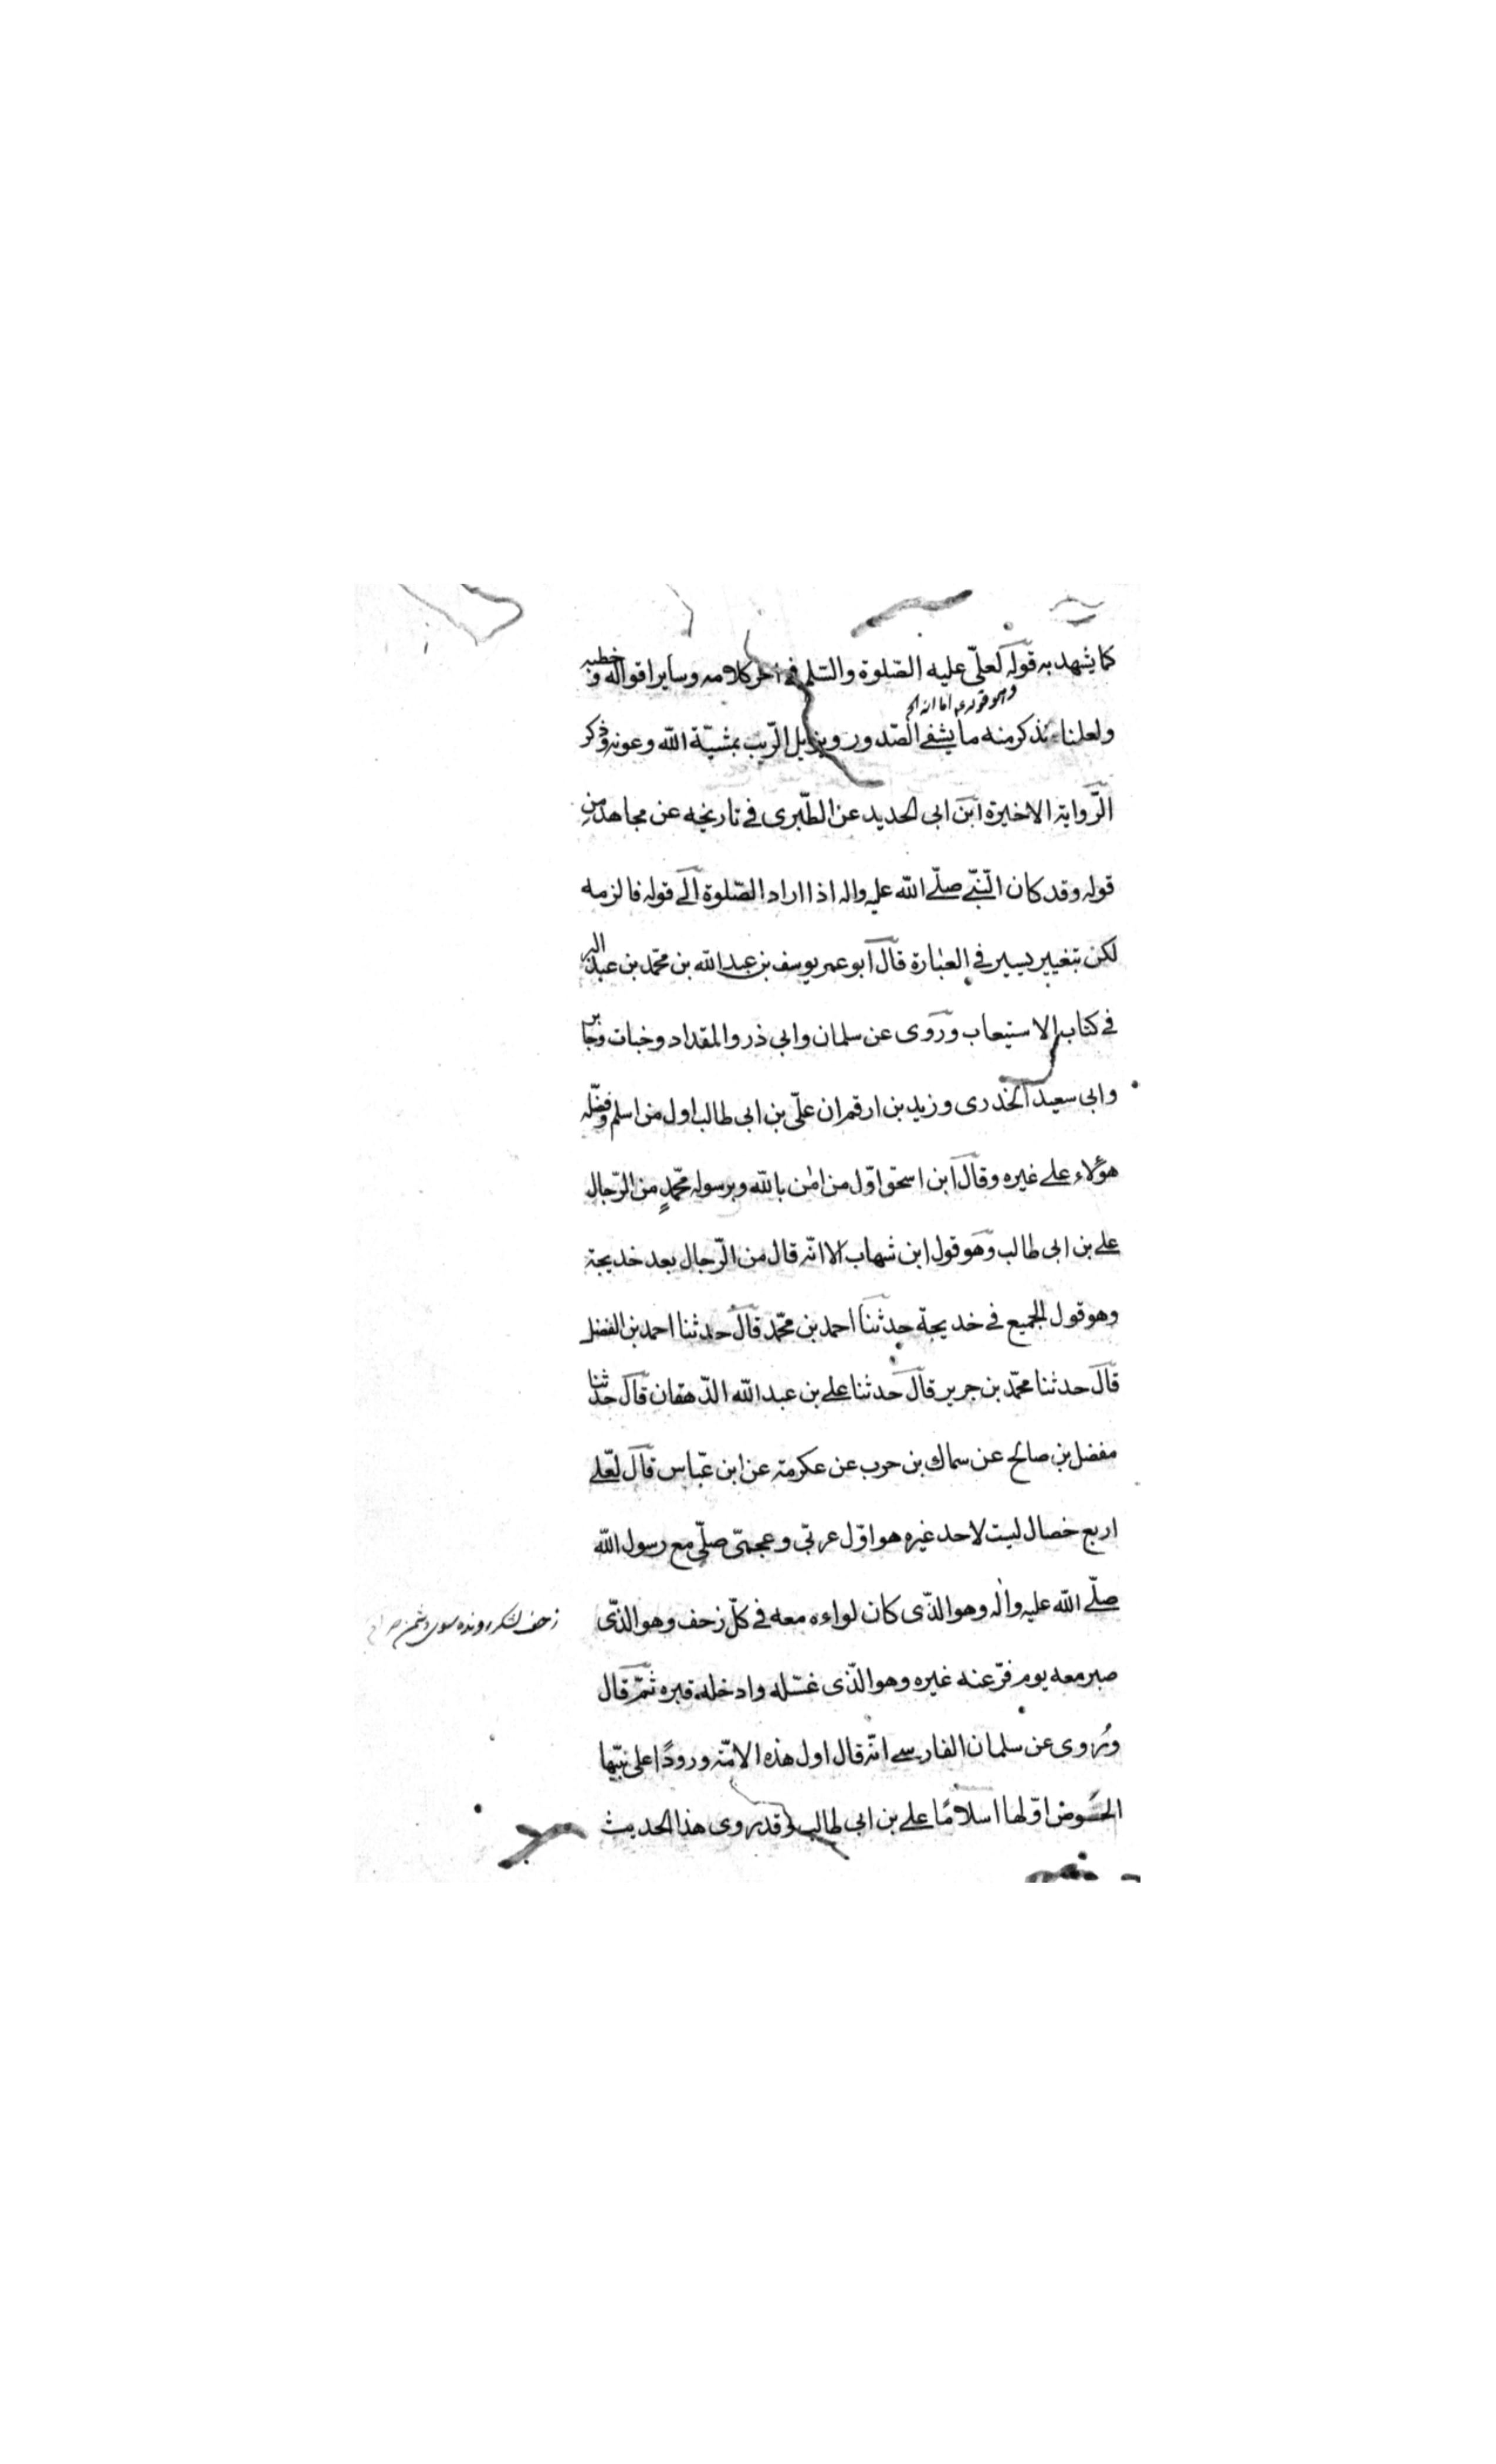 كما يشهد به قوله لعلىّ عليه الصّلوة والسّلم فى اخر كلامه وساير اقواله وخطبه
وهو قوله اما انه
ولعلنا نذكر منه ما يشفى الصّدور ويزيل الرّيب بمشيّة اللّه وعونه وذكر
الرّواية الاخيرة ابن ابى الحديد عن الطّبرى فى تاريخه عن مجاهد من
قوله وقد كان النّبىّ صلّى اللّه عليه واله اذا اراد الصّلوة الى قوله فالزمه
لكن بتغيير يسير فى العبارة قال ابو عمر يوسف بن عبد اللّه بن محمّد بن عبد البر
فى كتاب الاستيعاب وروى عن سلمان وابى ذر والمقداد وخبات وجابر
وابى سعيد الخدرى وزيد بن ارقم ان علىّ بن ابى طالب اول من اسلم وفضّله
هؤلاء على غيره وقال ابن اسحق اوّل من امن باللّه وبرسوله محمّدٍ من الرّجال
على بن ابى طالب وهو قول ابن شهاب الا انّه قال من الرّجال بعد خديجة
وهو قول الجميع فى خديجة حدثنا احمد بن محمّد قال حدثنا احمد بن الفضل
قال حدثنا محمّد بن جرير قال حدثنا على بن عبد اللّه الدّهقان قال حدثنا
مفضل بن صالح عن سماك بن حرب عن عكرمة عن ابن عبّاس قال لعلى
اربع خصال ليست لاحد غيره هو اوّل عربّى وعجمىّ صلّى مع رسول اللّه
صلّى اللّه عليه واله وهو الذّى كان لواءه معه فى كلّ زحف وهو الذّى
زحف لشكر رونده سوى دشمن
صبر معه يوم فرّ عنه غيره وهو الذّى غسّله وادخله قبره ثمّ قال
ورُوى عن سلمان الفارسى انّه قال اول هذه الامّة ورودًا على نبيّها
الحَوض اوّلها اسلامًا على بن ابى طالب وقد روى هذا الحديث